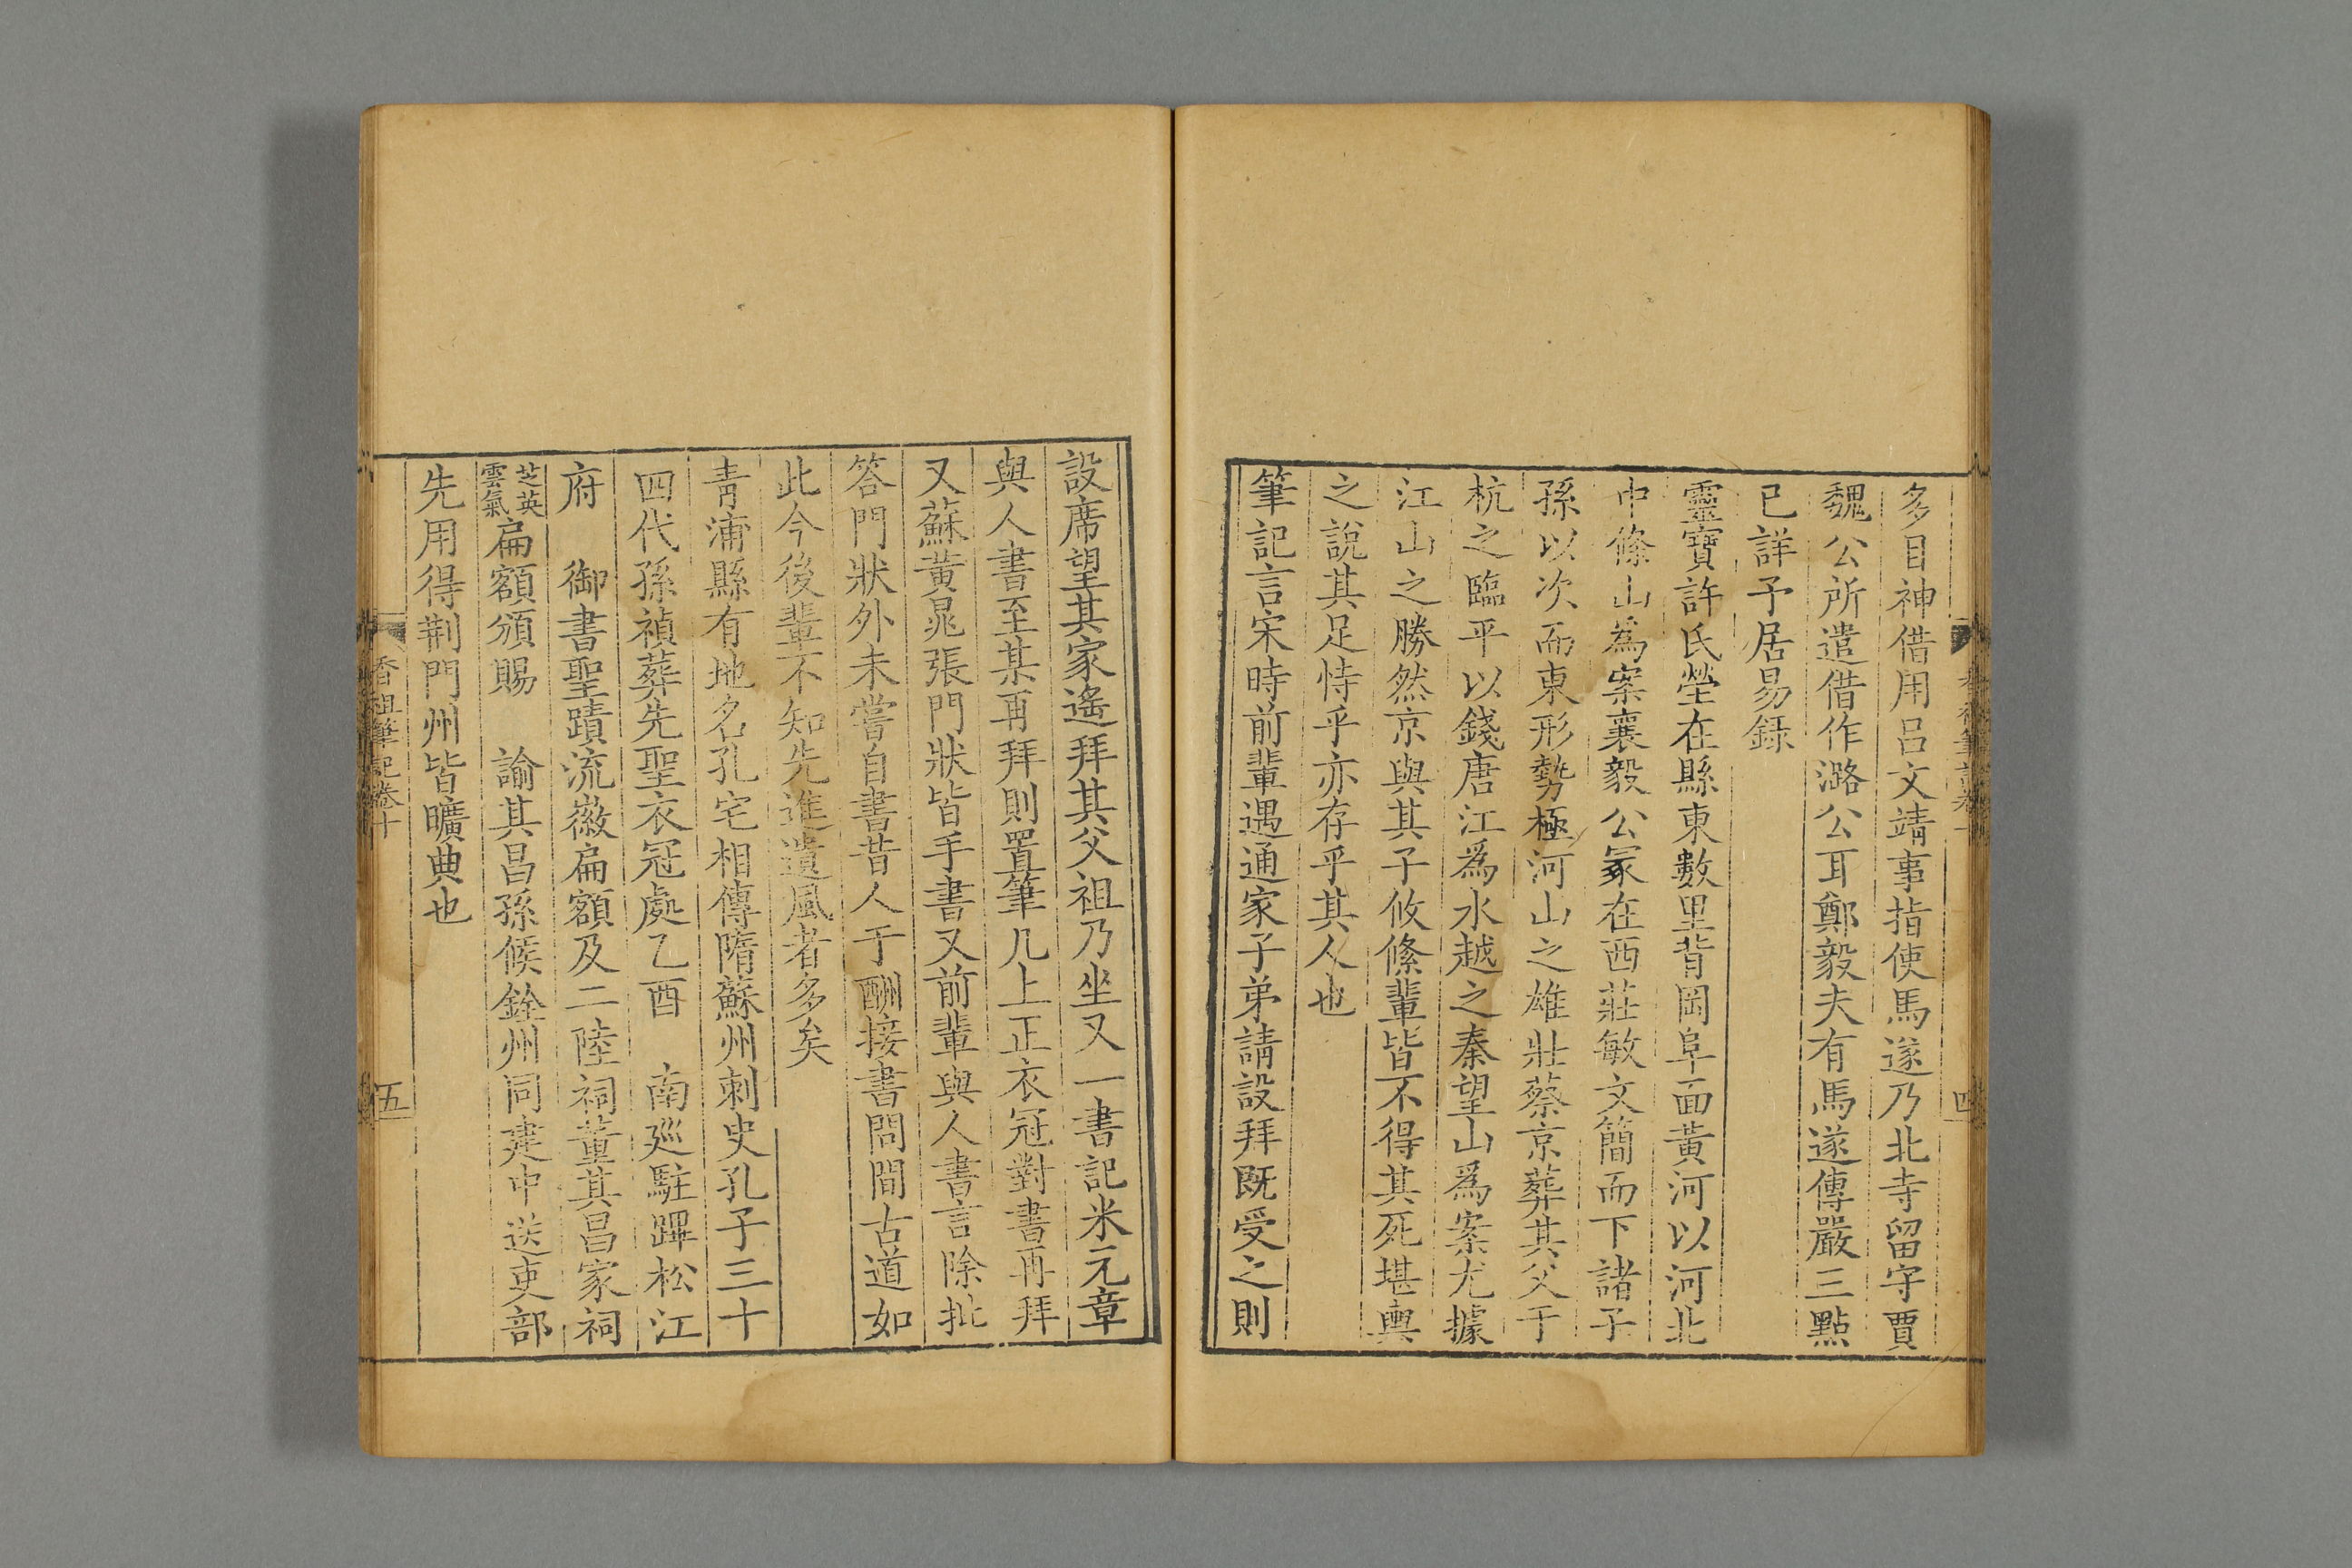 多目神借用呂文靖事指使馬遂乃北寺留守賈
魏公所遣借作潞公耳鄭毅夫有馬遂傳嚴三點
已詳予居易錄
靈寶許氏塋在縣東數里背岡阜面黃河以河北
中條山爲案襄毅公冢在西莊敏文簡而下諸子
孫以次而東形勢極河山之雄壯蔡京葬其父于
杭之臨平以錢唐江爲水越之秦望山爲案尤據
江山之勝然京與其子攸絛輩皆不得其死堪輿
之說其足恃乎亦存乎其人也
筆記言宋時前輩遇通家子弟請設拜既受之則
設席望其家遙拜其父祖乃坐又一書記米元章
與人書至某再拜則置筆几上正衣冠對書再拜
又蘇黃晁張門狀皆手書又前輩與人書言除批
答門狀外未嘗自書昔人于酬接書問間古道如
此今後輩不知先進遺風者多矣
青浦縣有地名孔宅相傳隋蘇州刺史孔子三十
四代孫禎葬先聖衣冠處乙酉 南巡駐蹕松江
府 御書聖蹟流徽扁額及二陸祠董其昌家祠
芝英
雲氣
扁額頒賜 諭其昌孫候銓州同建中送吏部
先用得荆門州皆曠典也
香祖筆記卷十
五